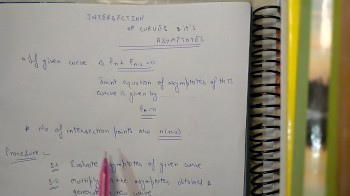 INTERSECTION
OF CURVES & IT'S
ASYMPTOTES
* If given curve is Fn + Fn-2 = 0
Joint equation of asymptotes of this
curve is given by
Fn = 0
* No of intersection points are n(n-2)
Procedure :-
S-1 Evaluate asymptotes of given curve
S-2 multiply the asymptotes obtained &
generate curve